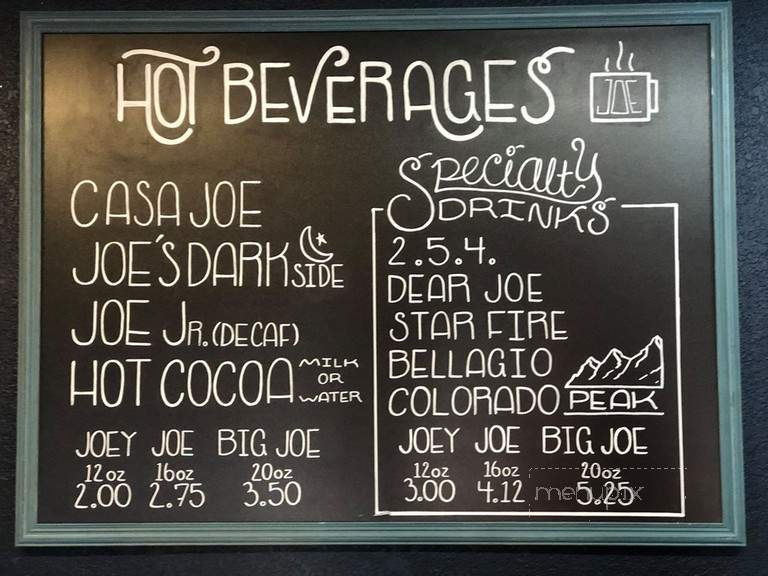 HOT BEVERAGES
JOE
CASA JOE
JOE'S DARK SIDE
JOE JR. (DECAF)
HOT COCOA MILK OR WATER
JOEY JOE BIG JOE
12oz 16oz 20oz
2.00 2.75 3.50
Specialty
DRINKS
2.5.4.
DEAR JOE
STAR FIRE
BELLAGIO
COLORADO PEAK
JOEY JOE BIG JOE
12oz 16oz 20oz
3.00 4.12 5.25
menupix